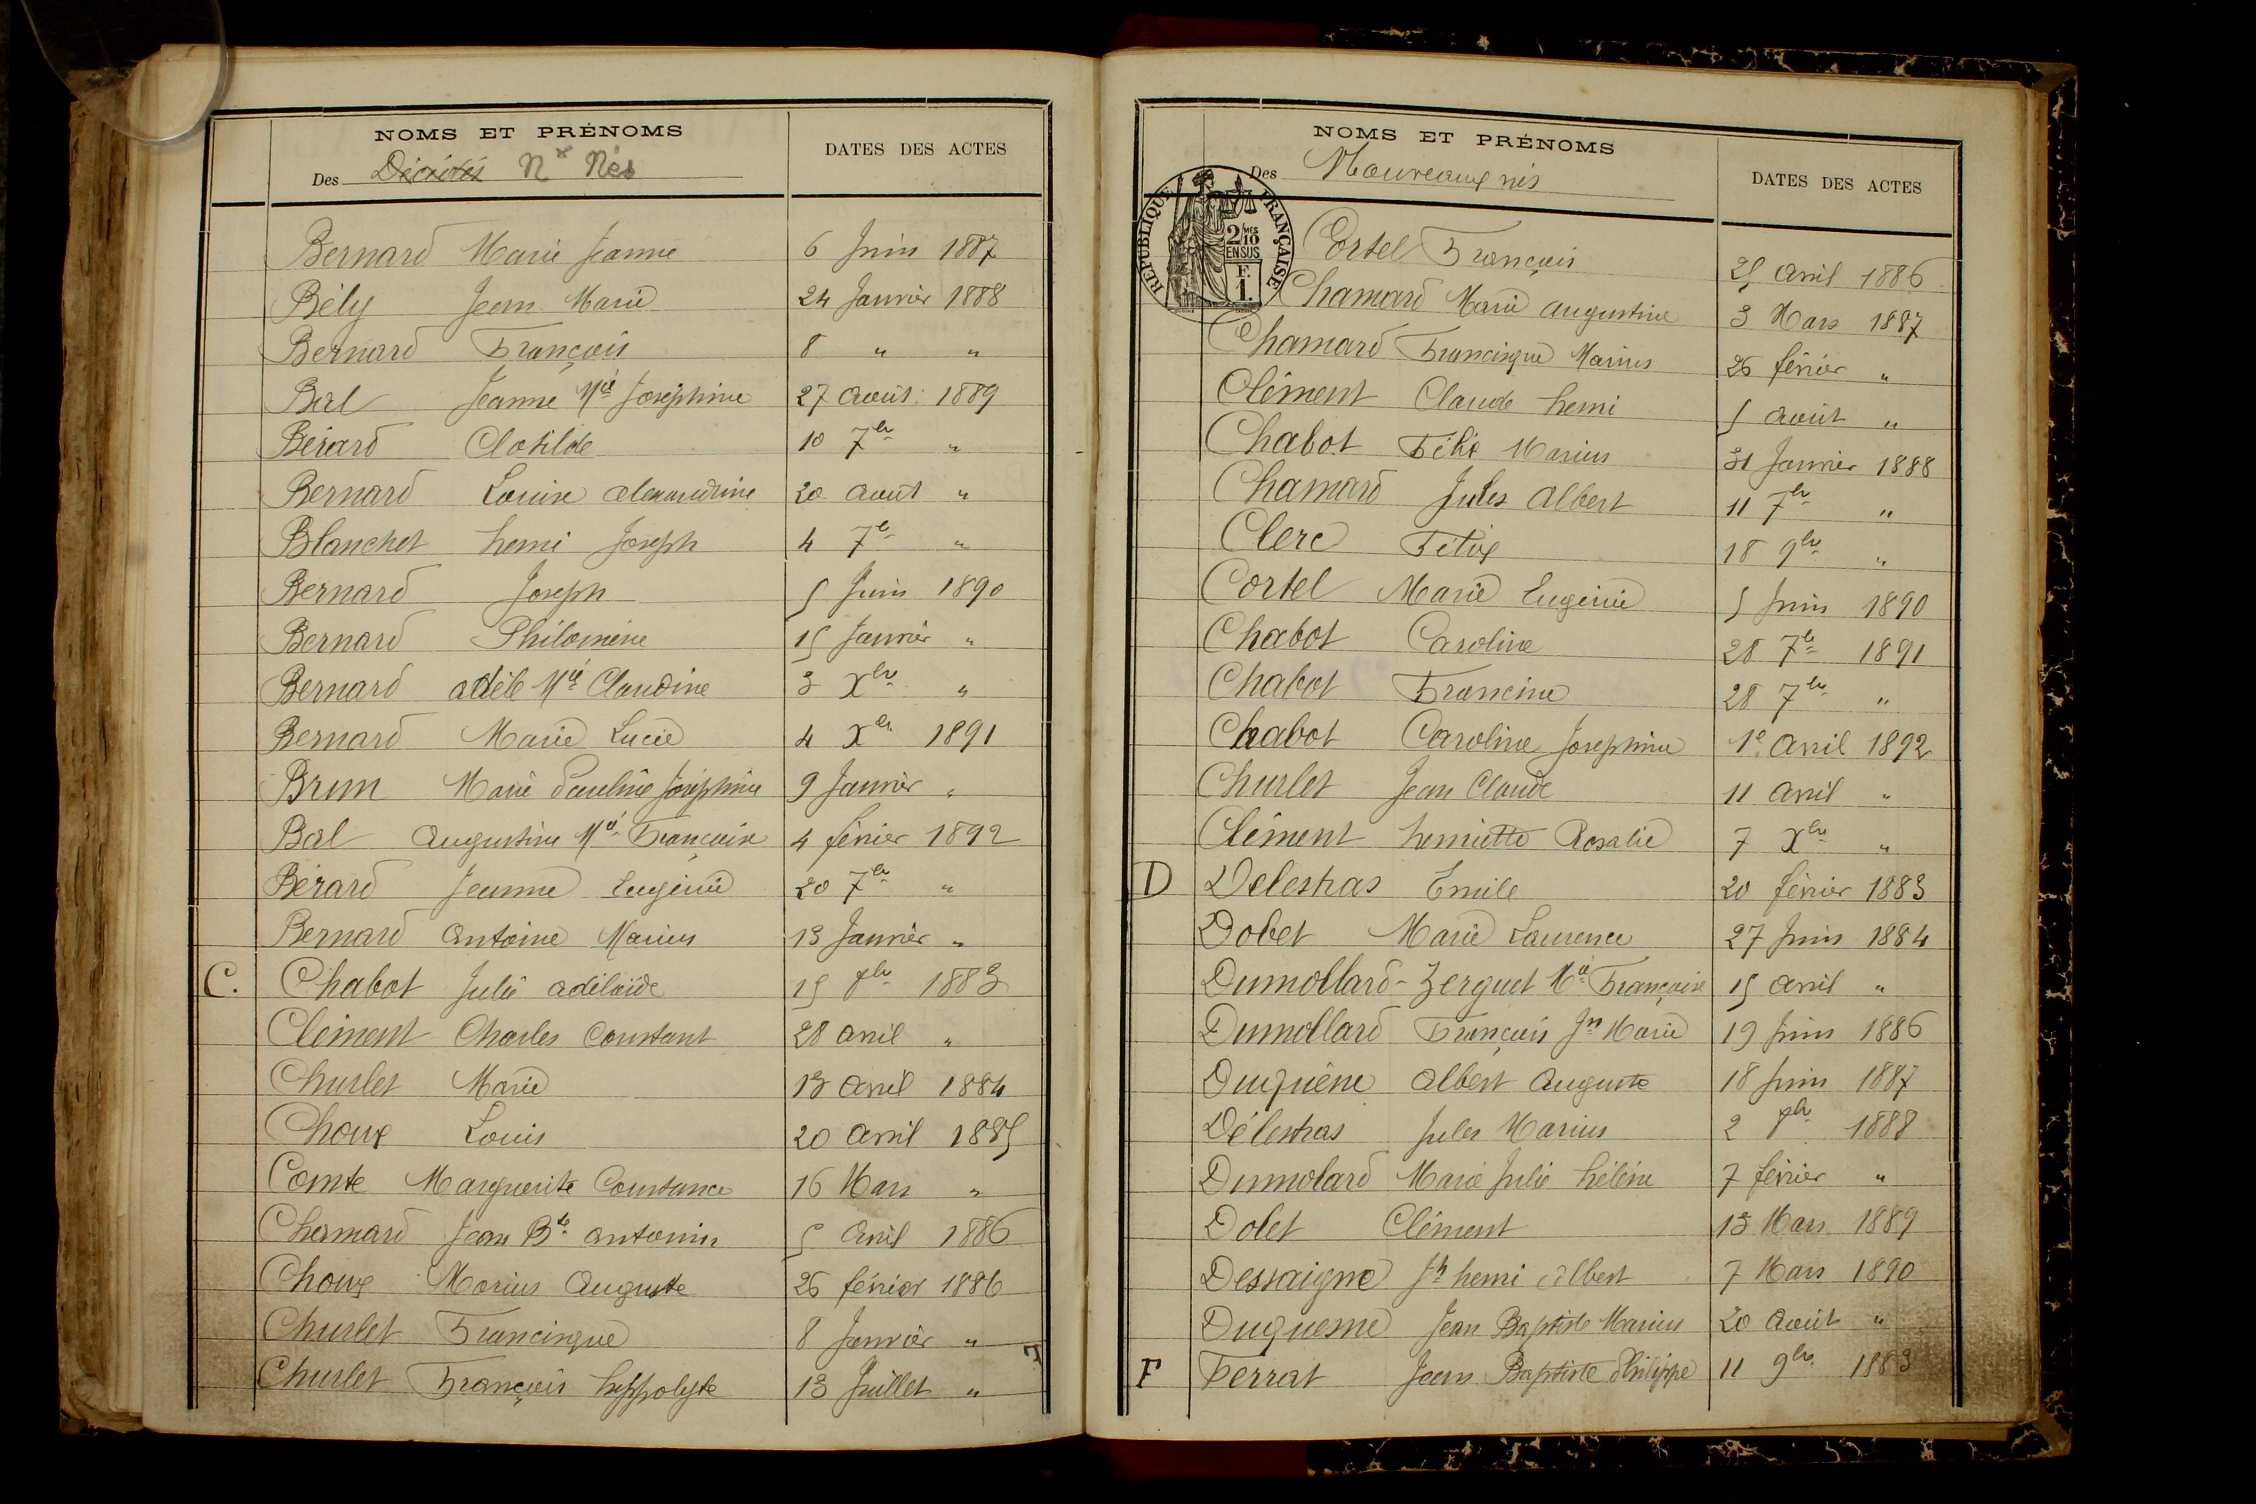 NOMS ET PRÉNOMS
Des Décédés Nx Nés
DATES DES ACTES
Bernard Marie Jeanne 6 Juin 1887
Bély Jean Marie 24 Janvier 1888
Bernard François 8 " "
Bal Jeanne Mie Joséphine 27 Août 1889
Bérard Clotilde 10 7bre "
Bernard Louise alexandrine 20 août "
Blanchet henri Joseph 4 7b "
Bernard Joseph 5 Juin 1890
Bernard Philomène 15 Janvier "
Bernard adèle Mie Claudine 3 Xbre "
Bernard Marie Lucie 4 Xbre 1891
Brun Marie Pauline Joséphine 9 Janvier "
Bal Augustine Mie Françoise 4 février 1892
Bérard Jeanne Eugénie 20 7bre "
Bernard Antoine Marius 13 Janvier "
C. Chabot Julie adélaïde 15 8bre 1883
Clément Charles Constant 28 avril "
Churlet Marie 13 avril 1884
Choux Louis 20 avril 1885
Comte Marguerite Constance 16 Mars "
Chamard Jean Bte antonin 5 Avril 1886
Choux Marius Auguste 26 février 1886
Churlet Francisque 8 Janvier "
Churlet François hyppolyte 13 Juillet "
NOMS ET PRÉNOMS
Des Nouveaux nés
DATES DES ACTES
RÉPUBLIQUE FRANÇAISE
2/10 MES
EN SUS
F.
1.
Cortel François 25 avril 1886
Chamard Marie augustine 3 Mars 1887
Chamard Francisque Marius 26 février "
Clément Claude henri 5 août "
Chabot Félix Marius 31 Janvier 1888
Chamard Jules Albert 11 7bre "
Clerc Félix 18 9bre "
Cortel Marie Eugénie 5 Juin 1890
Chabot Caroline 28 7b 1891
Chabot Francine 28 7bre "
Chabot Caroline Josephine 1e avril 1892
Churlet Jean Claude 11 avril "
Clément henriette Rosalie 7 Xbre "
D Delestras Emile 20 février 1883
Dobet Marie Laurence 27 Juin 1884
Dumollard-Zerguet Mie Françoise 15 avril "
Dumollard François Jn Marie 19 Juin 1886
Duquêne Albert Auguste 18 Juin 1887
Délestras Jules Marius 2 8bre 1888
Dumolard Marie Julie hélène 7 février "
Dolet Clément 13 Mars 1889
Dessaigne Jh henri Albert 7 Mars 1890
Duquesne Jean Baptiste Marius 20 Août "
F Ferrat Jean Baptiste Philippe 11 9bre 1883